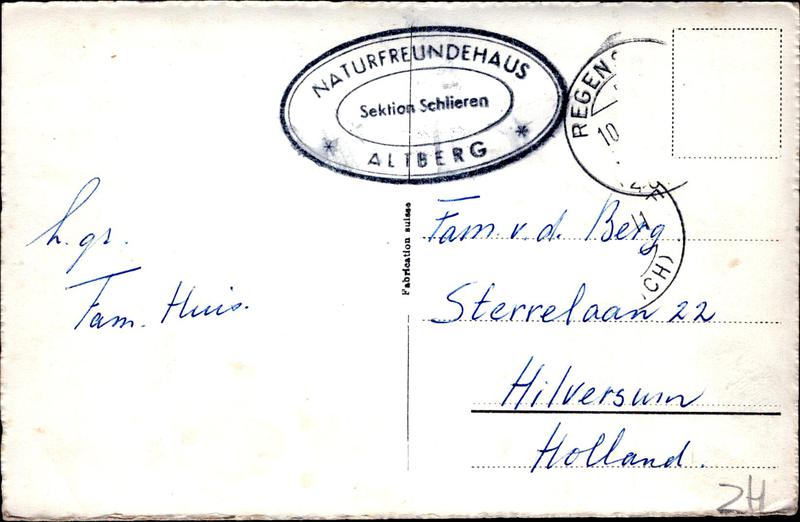 NATURFREUNDEHAUS
Sektion Schlieren
* ALTBERG *
REGENS
10
Fabrication suisse
h. gr.
Fam. Huis.
Fam. v. d. Berg
Sterrelaan 22
Hilversum
Holland.
(CH)
ZH